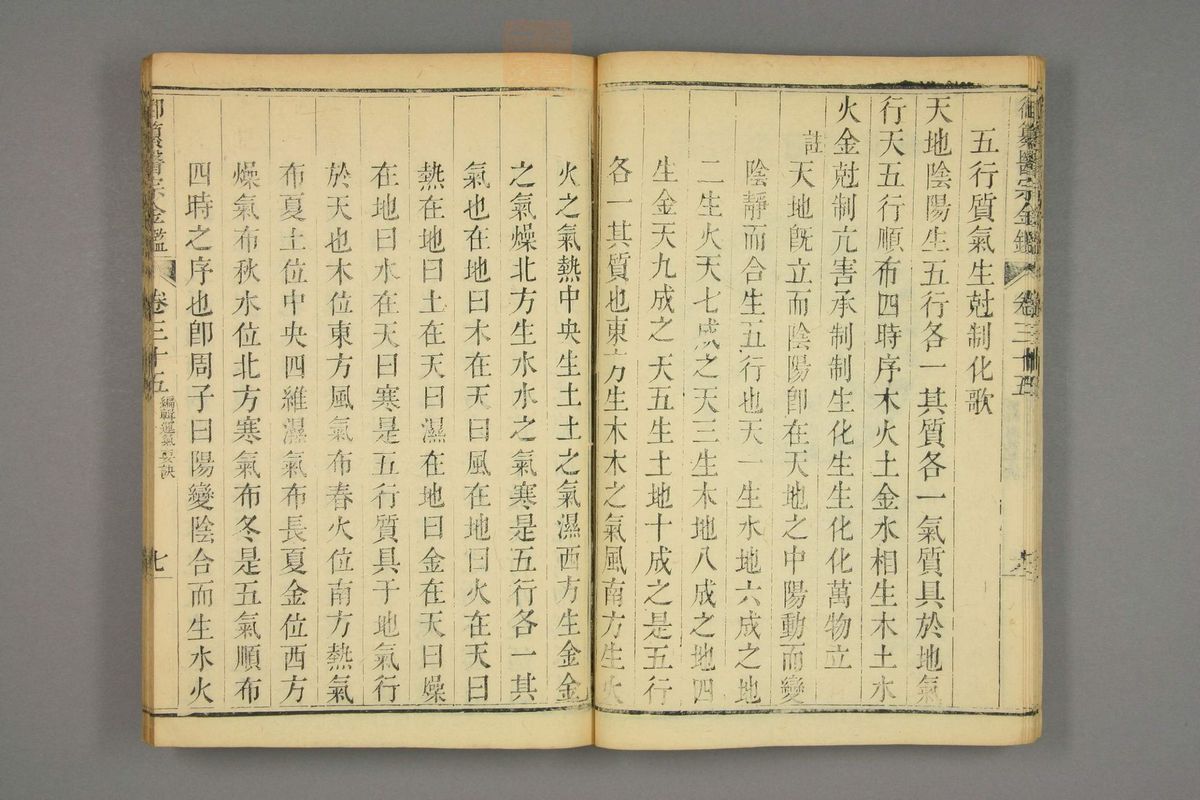 五行質氣生尅制化歌
天地陰陽生五行各一其質各一氣質具於地氣
行天五行順布四時序木火土金水相生木土水
火金尅制亢害承制制生化生生化化萬物立
註天地旣立而陰陽卽在天地之中陽動而變
陰靜而合生五行也天一生水地六成之地
二生火天七成之天三生木地八成之地四
生金天九成之天五生土地十成之是五行
各一其質也東方生木木之氣風南方生火
火之氣熱中央生土土之氣濕西方生金金
之氣燥北方生水水之氣寒是五行各一其
氣也在地曰木在天曰風在地曰火在天曰
熱在地曰土在天曰濕在地曰金在天曰燥
在地曰水在天曰寒是五行質具于地氣行
於天也木位東方風氣布春火位南方熱氣
布夏土位中央四維濕氣布長夏金位西方
燥氣布秋水位北方寒氣布冬是五氣順布
四時之序也卽周子曰陽變陰合而生水火
御纂醫宗金鑑
卷三十五
編輯運氣要訣
七